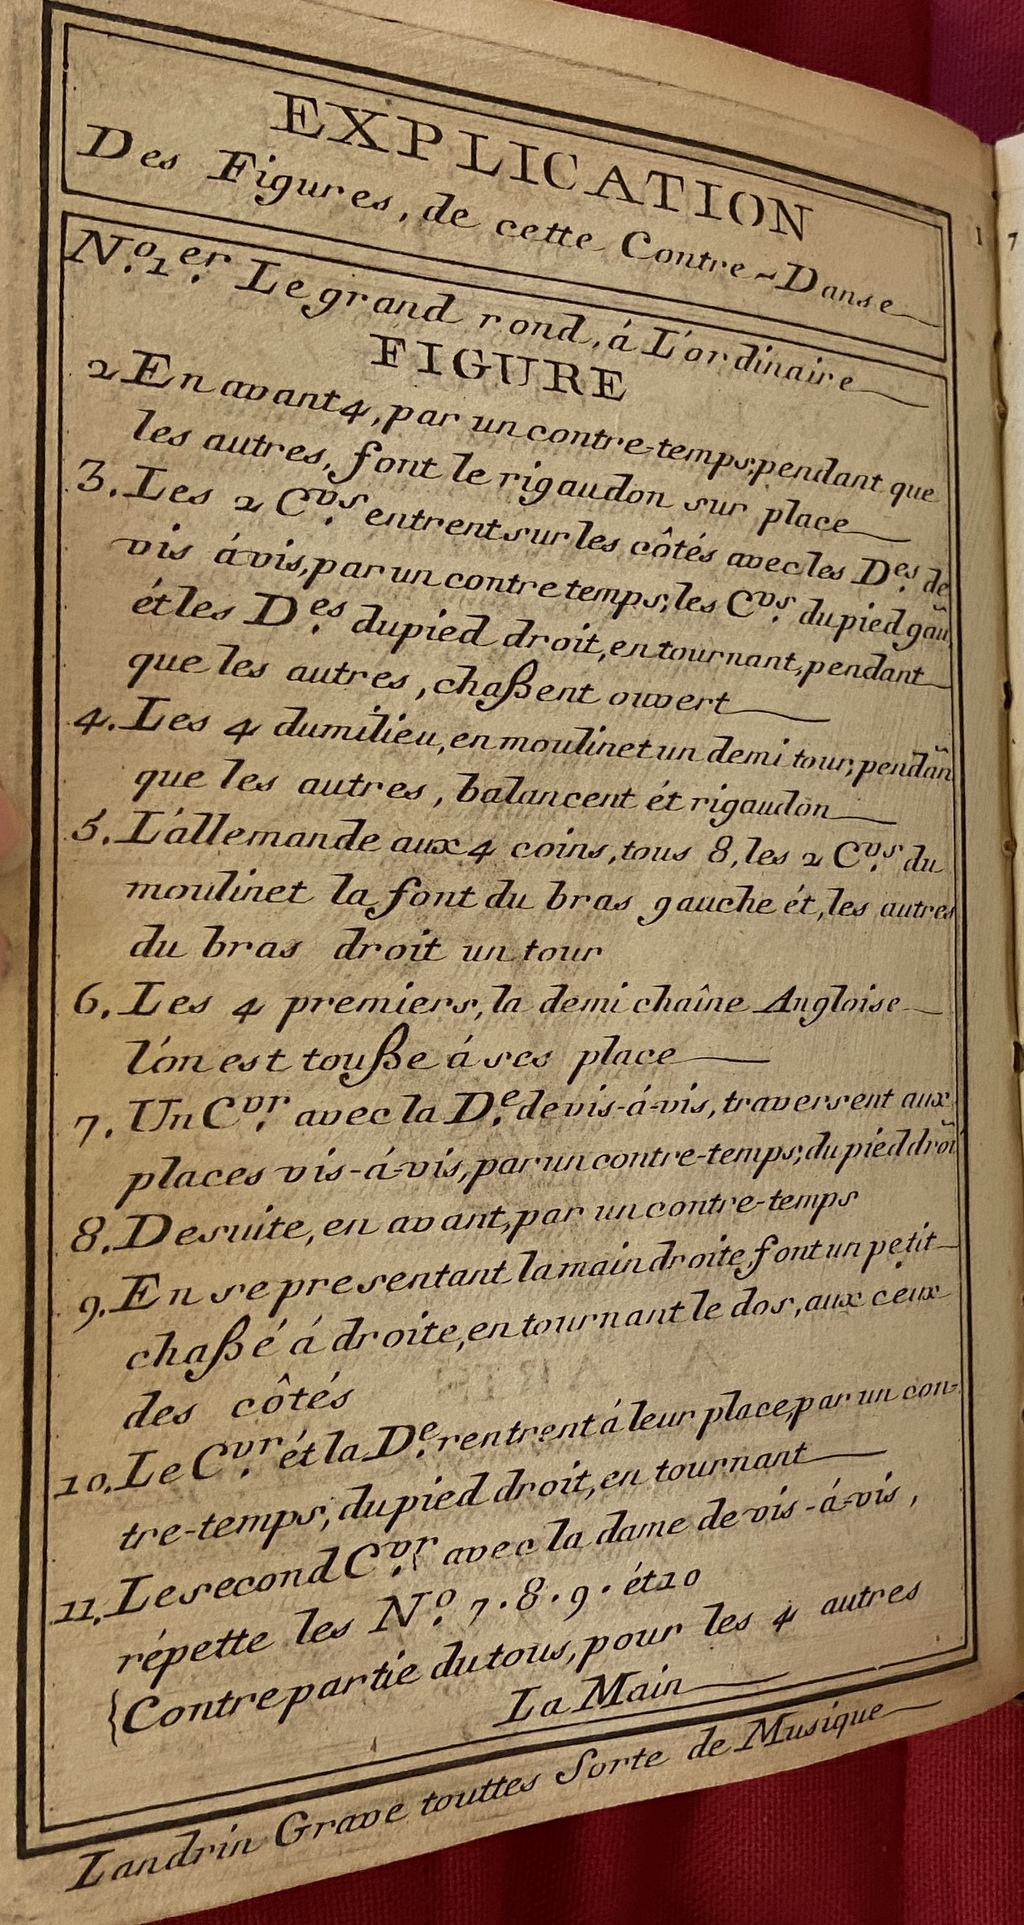 EXPLICATION
Des Figures, de cette Contre-Danse
N.º 1.er Le grand rond, á L'ordinaire
FIGURE
2 En avant 4, par un contre-temps; pendant que
les autres, font le rigaudon sur place
3. Les 2 C.vrs entrent sur les côtés avec les D.es de
vis á vis, par un contre temps; les C.vrs du pied gau
ét les D.es du pied droit, en tournant, pendant
que les autres, chaßent ouvert
4. Les 4 du milieu, en moulinet un demi tour; pendañ
que les autres, balancent ét rigaudon
5. L'allemande aux 4 coins, tous 8, les 2 C.vrs du
moulinet la font du bras gauche ét, les autres
du bras droit un tour
6. Les 4 premiers, la demi chaîne Angloise
l'on est touße á ses place
7. Un C.vr avec la D.e de vis-á-vis, traversent aux
places vis-á-vis, par un contre-temps; du pied droi
8. De suite, en avant, par un contre-temps
9. En se presentant la main droite, font un petit
chaßé á droite, en tournant le dos, aux ceux
des côtés
10. Le C.vr ét la D.e rentrent á leur place, par un con-
tre-temps; du pied droit, en tournant
11. Le second C.vr avec la dame de vis-á-vis,
répette les N.º 7. 8. 9. ét 10
{Contre partie du tous, pour les 4 autres
La Main
Landrin Grave touttes Sorte de Musique
1 7